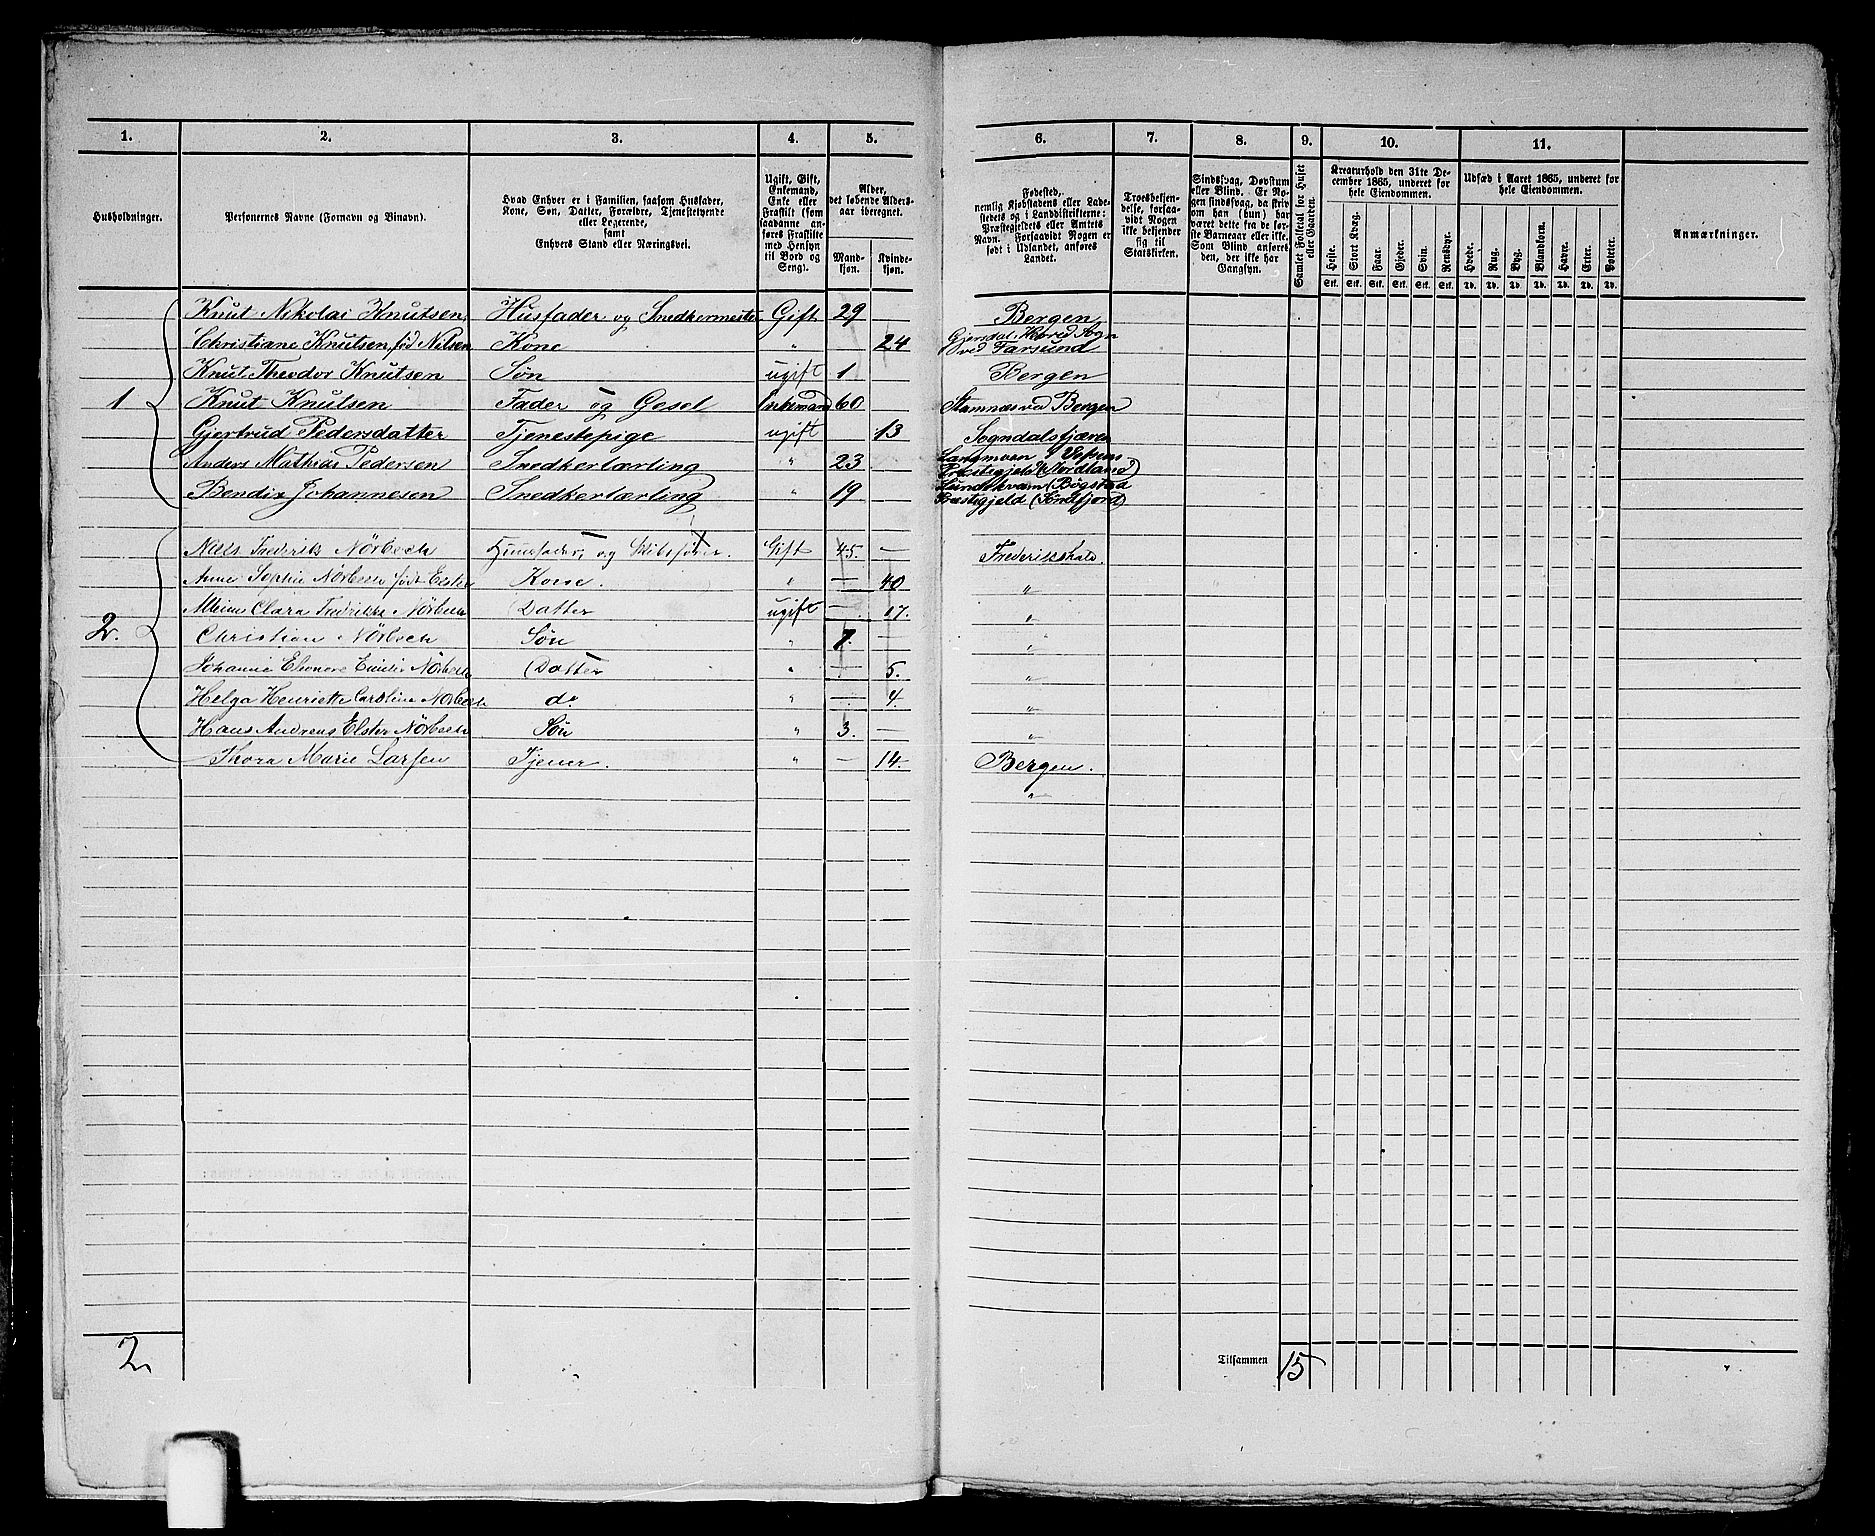 1. 2. 3. 4. 5. 6. 7. 8. 9. 10. 11.
Husholdninger.
Personernes Navne (Fornavn og Binavn).
Hvad Enhver er i Familien, saasom Husfader,
Kone, Søn, Datter, Forældre, Tjenestetyende
eller Logerende,
samt
Enhvers Stand eller Næringsvei.
Ugift, Gift,
Enkemand,
Enke eller
Fraskilt (som
saadanne an-
føres Fraskilte
med Hensyn
til Bord og
Seng).
Alder,
det løbende Alders-
aar iberegnet.
Mand-
kjøn.
Kvinde-
kjøn.
Fødested,
nemlig Kjøbstadens eller Lade-
stedets og i Landdistrikterne:
Præstegjeldets eller Amtets
Navn. Forsaavidt Nogen er
født i Udlandet, anføres
Landet.
Troesbekjen-
delse, forsaa-
vidt Nogen
ikke bekjender
sig til
Statskirken.
Sindssvag, Døvstum
eller Blind. Er No-
gen sindssvag, da skriv
om han (hun) har
været dette fra de før-
ste Barneaar eller ikke.
Som Blind anføres
den, der ikke har
Gangsyn.
Samlet Folketal for Huset
eller Gaarden.
Kreaturhold den 31te De-
cember 1865, underet for
hele Eiendommen.
Heste. Stort Kvæg. Faar. Gjeder. Svin. Rensdyr.
Stk. Stk. Stk. Stk. Stk. Stk.
Udsæd i Aaret 1865, underet for
hele Eiendommen.
Hvede. Rug. Byg. Blandkorn. Havre. Erter. Poteter.
Td. Td. Td. Td. Td. Td. Td.
Anmærkninger.
Knut Nikolai Knutsen Husfader og Snedkermester Gift 29 Bergen
Christiane Knutsen, fød Nilsen Kone " 24 ved Farsund
Knut Theodor Knutsen Søn ugift 1 Bergen
1 Knut Knutsen Fader og Gesel Enkemand 60 Stamnæs ved Bergen
Gjertrud Pedersdatter Tjenestepige ugift 13 Sogndalsfjæren
Anders Mathias Pedersen Snedkerlærling " 23 Præstegjeld (Nordland)
Bendix Johannesen Snedkerlærling " 19 Præstegjeld (Søndfjord)
Niels Frederik Nörbech Huusfader, og Skibsfører. Gift 45. — Frederikshald.
Anne Sophie Nörbech født Elster Kone. " — 40 "
Clara Fredrikke Nörbech Datter ugift — 17. "
2. Christian Nörbech Søn " 7. — "
Johanne Eleonore Emilie Nörbech Datter " — 5. "
Helga Henriette Caroline Nörbech do " — 4 "
Hans Andreas Elster Nörbech Søn " 3. — "
Thora Marie Larsen Tjener. " — 14. Bergen.
"
2 Tilsammen 15